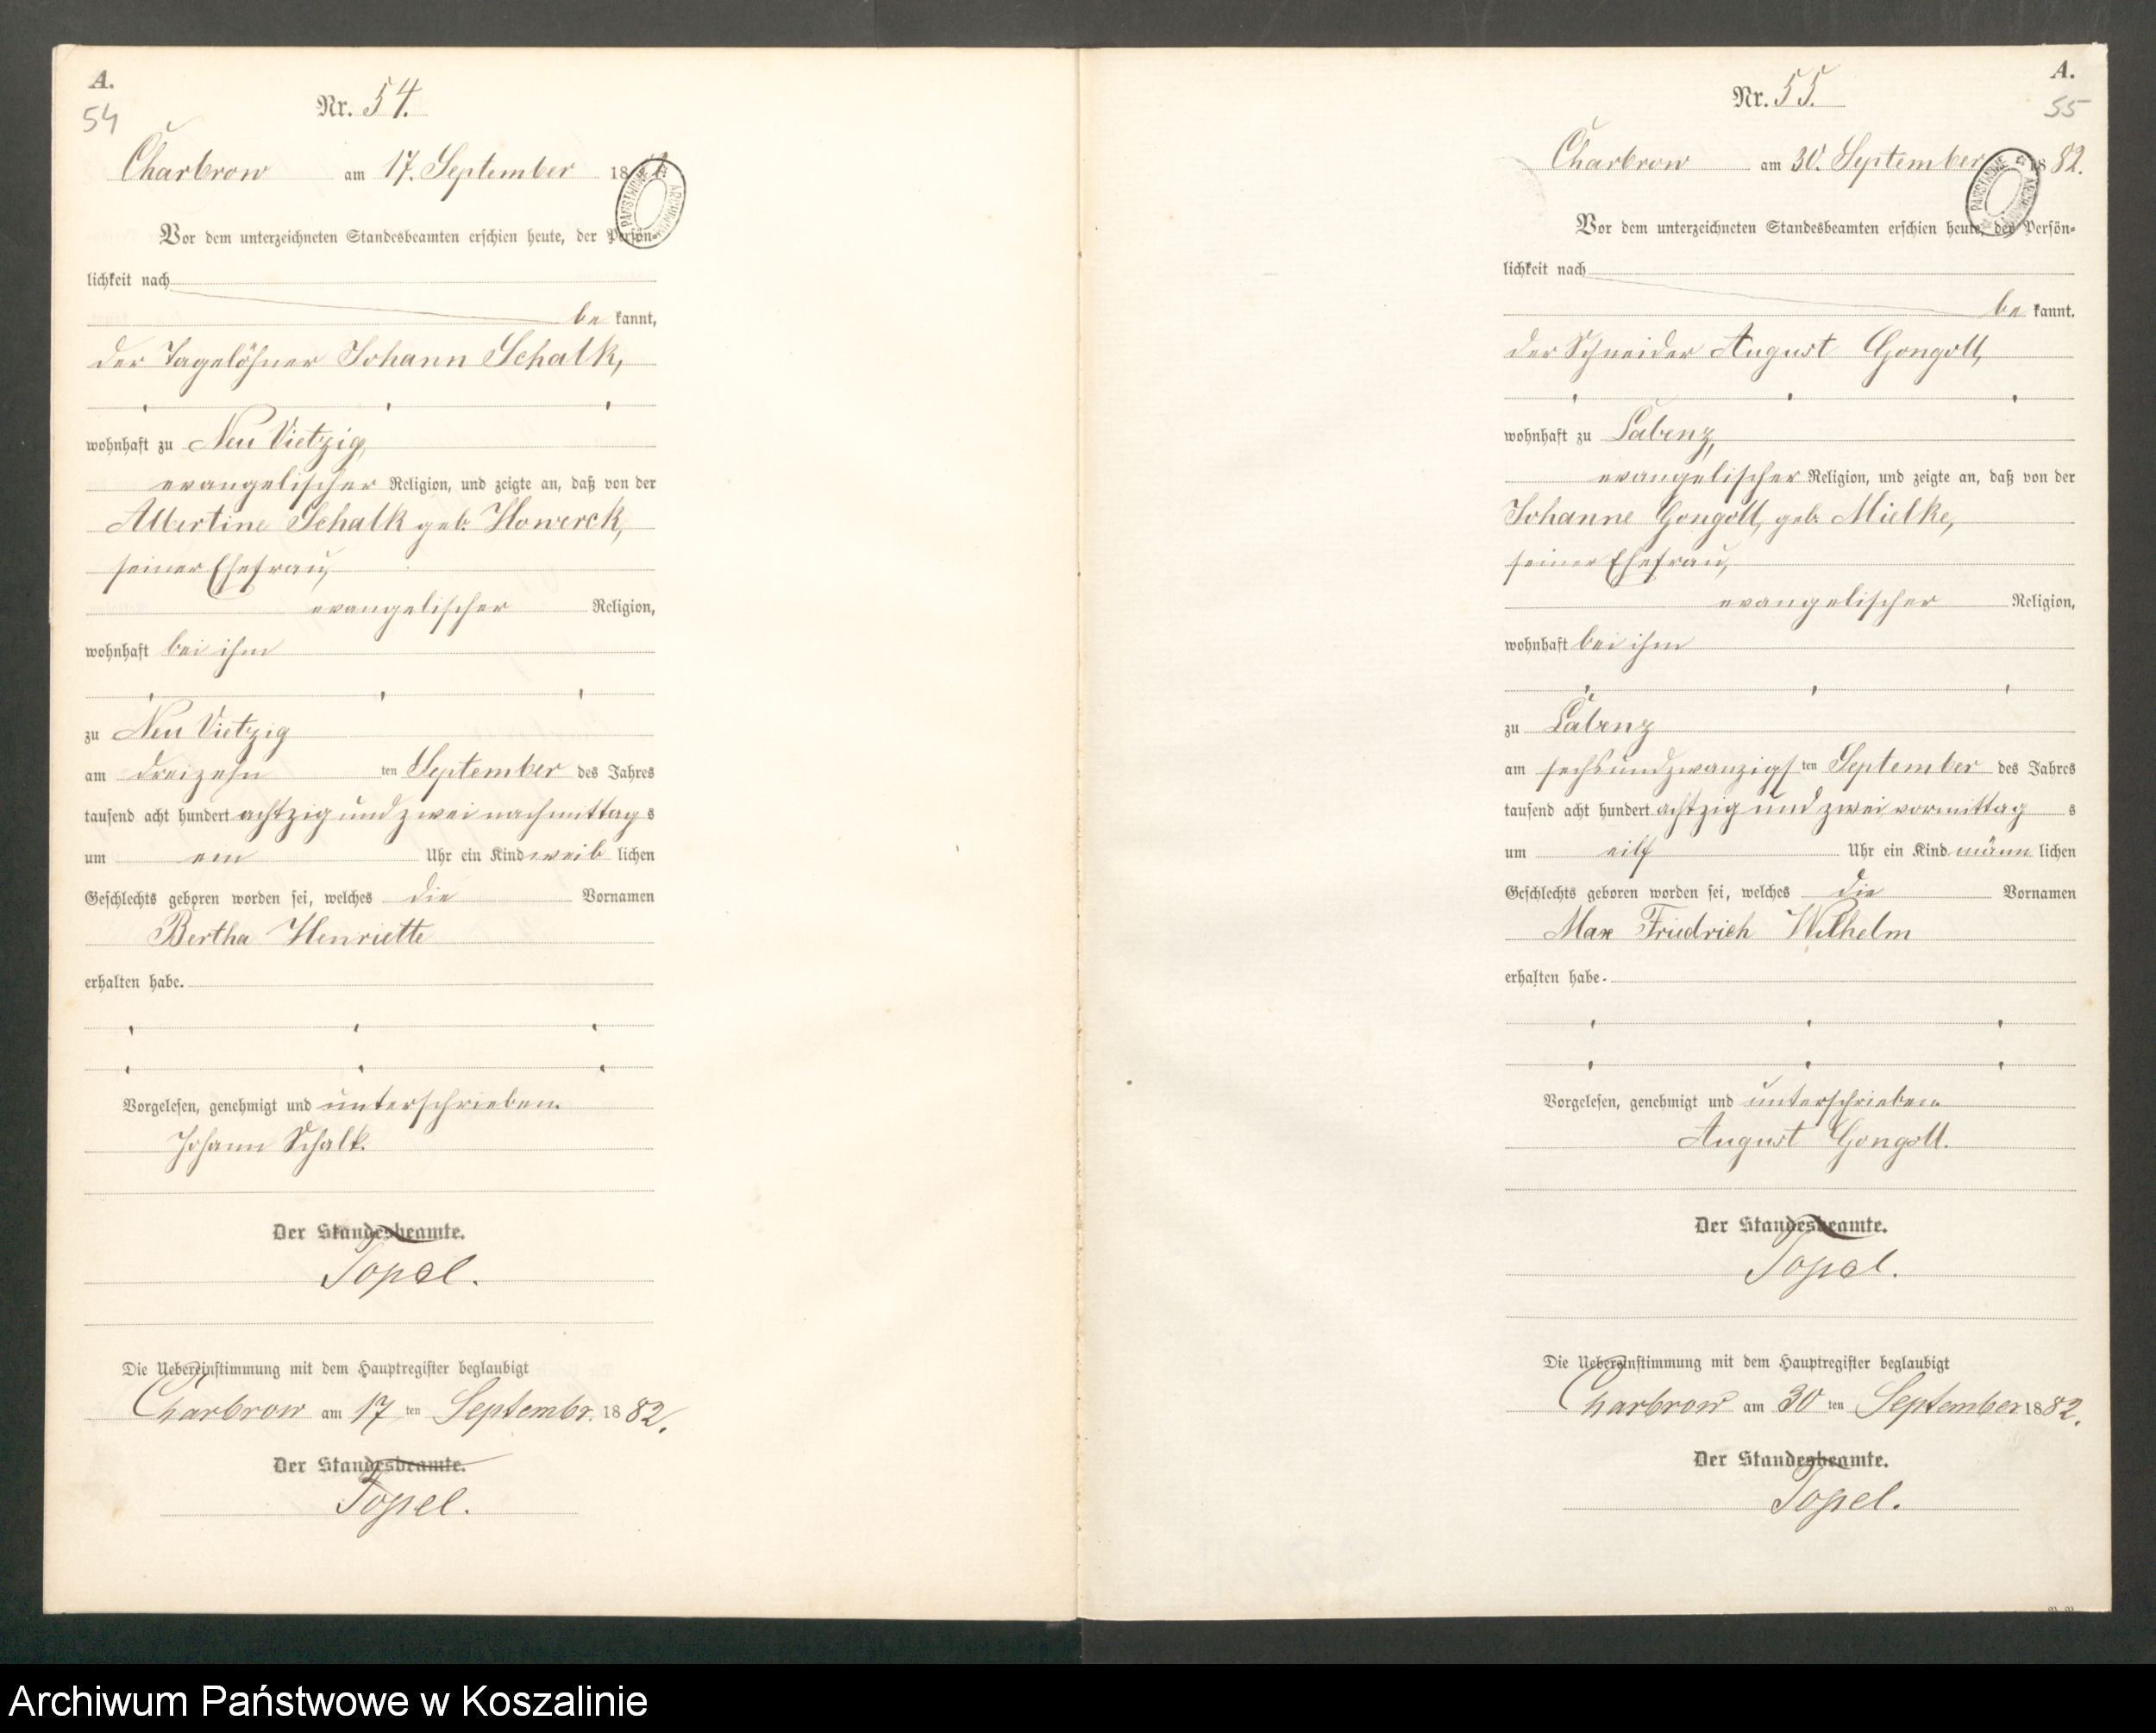 A.
54
Nr. 54.
Charbrow am 17. September 18
Vor dem unterzeichneten Standesbeamten erschien heute, der Persön-
lichkeit nach
be kannt,
der Tagelöhner Johann Schalk,
wohnhaft zu Neu Vietzig,
evangelischer Religion, und zeigte an, daß von der
Albertine Schalk geb. Howerck,
seiner Ehefrau,
evangelischer Religion,
wohnhaft bei ihm
zu Neu Vietzig
am dreizehn ten September des Jahres
tausend acht hundert achtzig und zwei nachmittag s
um ein Uhr ein Kind weib lichen
Geschlechts geboren worden sei, welches die Vornamen
Bertha Henriette
erhalten habe.
Vorgelesen, genehmigt und unterschrieben.
Johann Schalk.
Der Standesbeamte.
Topel.
Die Uebereinstimmung mit dem Hauptregister beglaubigt
Charbrow am 17 ten Septembr. 18 82.
Der Standesbeamte.
Topel.
A.
55
Nr. 55.
Charbrow am 30. September 18 82.
Vor dem unterzeichneten Standesbeamten erschien heute, der Persön-
lichkeit nach
be kannt.
der Schneider August Gongoll,
wohnhaft zu Labenz,
evangelischer Religion, und zeigte an, daß von der
Johanne Gongoll, geb. Mielke,
seiner Ehefrau,
evangelischer Religion,
wohnhaft bei ihm
zu Labenz
am sechsundzwanzigs ten September des Jahres
tausend acht hundert achtzig und zwei vormittag s
um eilf Uhr ein Kind männ lichen
Geschlechts geboren worden sei, welches die Vornamen
Max Friedrich Wilhelm
erhalten habe.
Vorgelesen, genehmigt und unterschrieben
August Gongoll.
Der Standesbeamte.
Topel.
Die Uebereinstimmung mit dem Hauptregister beglaubigt
Charbrow am 30 ten September 18 82.
Der Standesbeamte.
Topel.
Archiwum Państwowe w Koszalinie